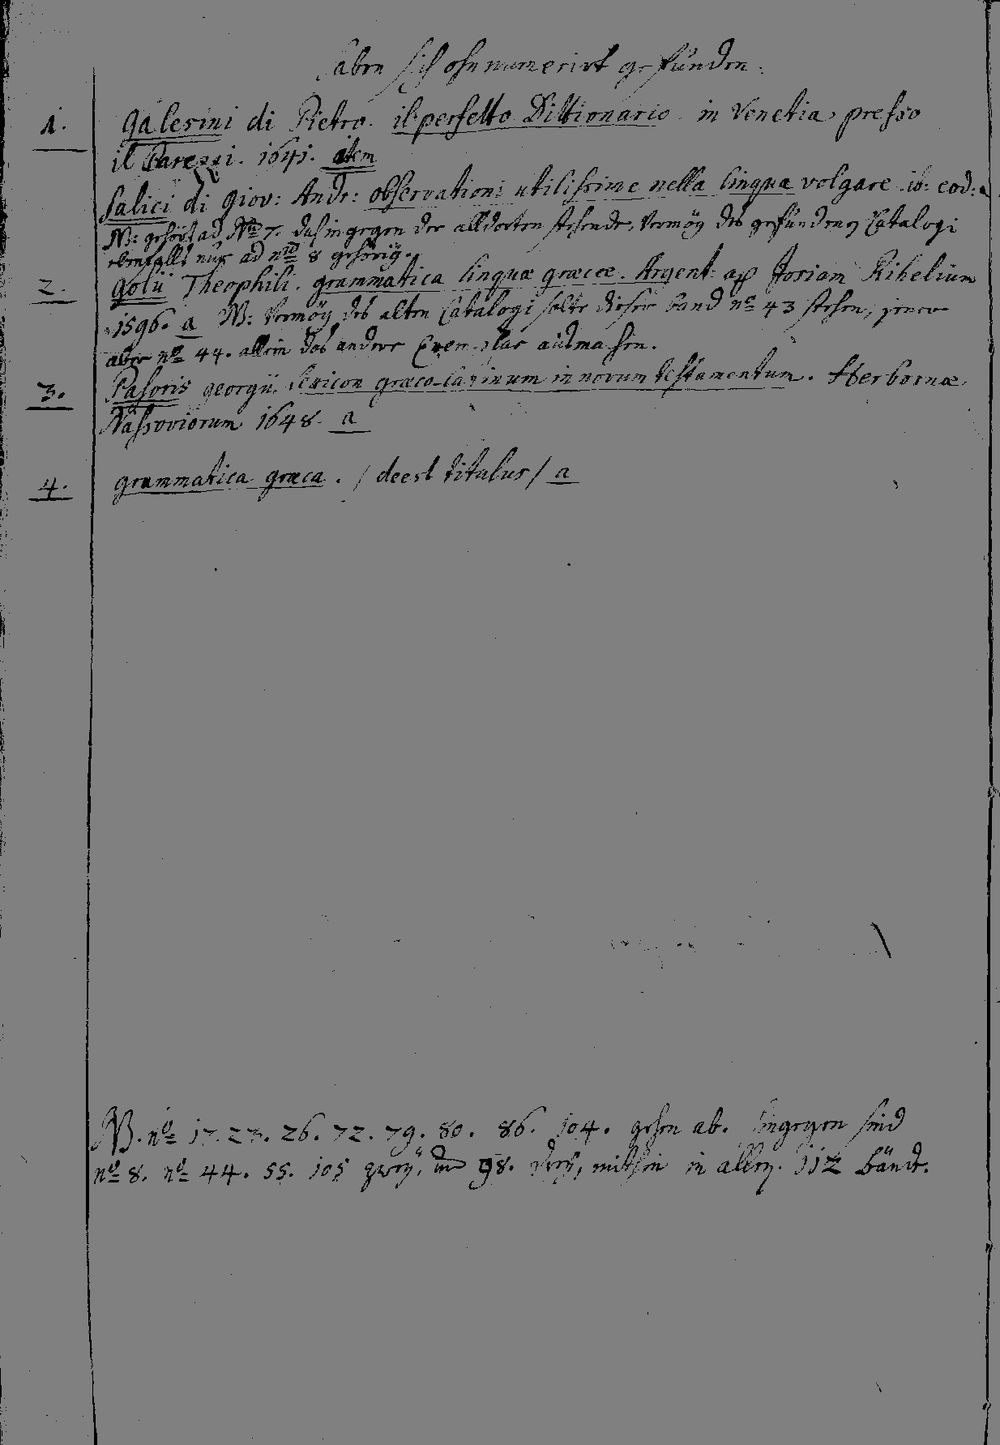 haben sich ohnnumerirt gefunden.
1. Galesini di Pietro. il perfetto Dittionario. in Venetia, presso
il Barezzi. 1641. item
Salici di Giov: Andr: observationi utilissime nella lingua volgare. ib: eod: a
NB: gehört ad Nro 7. dahingegen der alldorten stehende, Vermög des gefundenen Catalogi
ebenfalls nur ad nro 8 gehörig.
2. Golii Theophili. grammatica linguæ græcæ. Argent: ap Josiam Rihelium
1596. a NB: Vermög des alten Catalogi solte dieser band no 43 stehen, jener
aber no 44. allein das andere Exemplar
3. Pasoris georgii. Lexicon græco-latinum in novum testamentum. Herbornæ
Nassoviorum 1648. a
4. grammatica græca. / deest titulus / a
NB. no 17. 23. 26. 72. 79. 80. 86. 104. gehen ab. hingegen sind
no 8. no 44. 55. 105 zweÿ, und 98. dreÿ, mithin in allem. 112 bände.